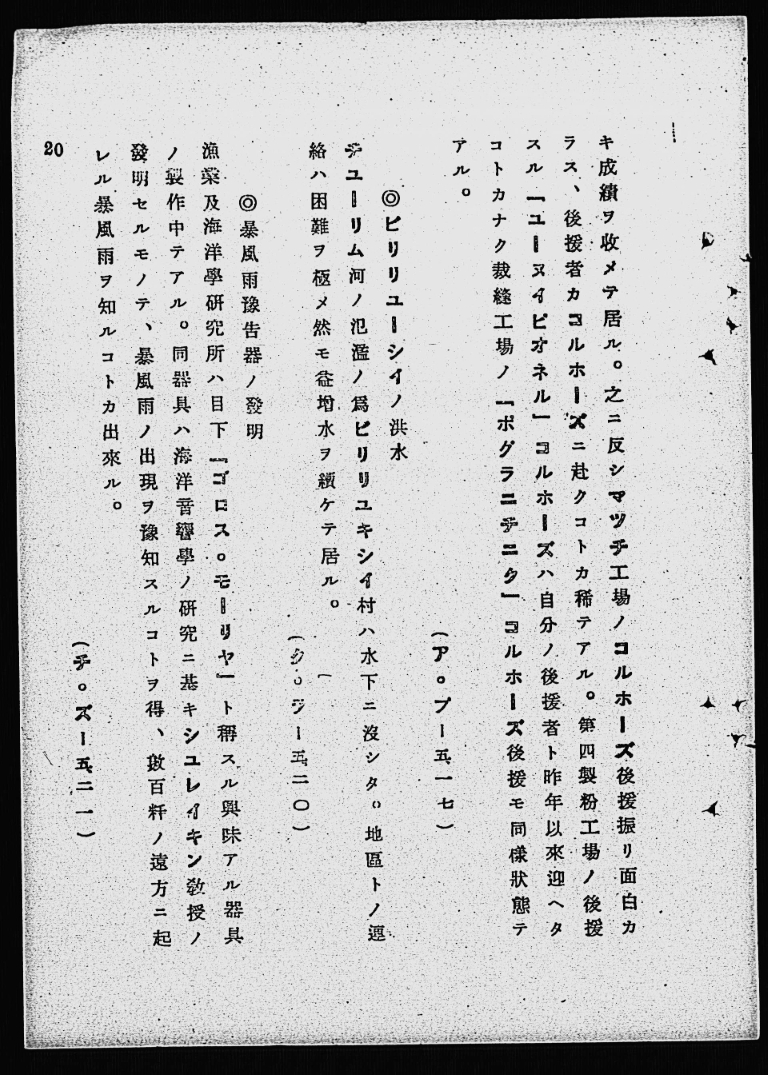 キ成績ヲ收メテ居ル。之ニ反シマツチ工場ノコルホーズ後援振リ面白カ
ラス、後援者カコルホーズニ赴クコトカ稀テアル。第四製粉工場ノ後援
スル「ユーヌイピオネル」コルホーズハ自分ノ後援者ト昨年以來迎ヘタ
コトカナク裁縫工場ノ「ボグラニチニク」コルホーズ後援モ同樣狀態テ
アル。
(ア。プー五一七)
◎ビリリユーシイノ洪水
チユーリム河ノ氾濫ノ爲ビリリユキシイ村ハ水下ニ沒シタ。地區トノ連
絡ハ困難ヲ極メ然モ益增水ヲ續ケテ居ル。
(ク。ラー五二〇)
◎暴風雨豫告器ノ發明
漁業及海洋學硏究所ハ目下「ゴロス。モーリヤ」ト稱スル興味アル器具
ノ製作中テアル。同器具ハ海洋音響學ノ硏究ニ基キシユレイキン敎授ノ
發明セルモノテ、暴風雨ノ出現ヲ豫知スルコトヲ得、數百粁ノ遠方ニ起
レル暴風雨ヲ知ルコトカ出來ル。
(チ。ズー五二一)
20